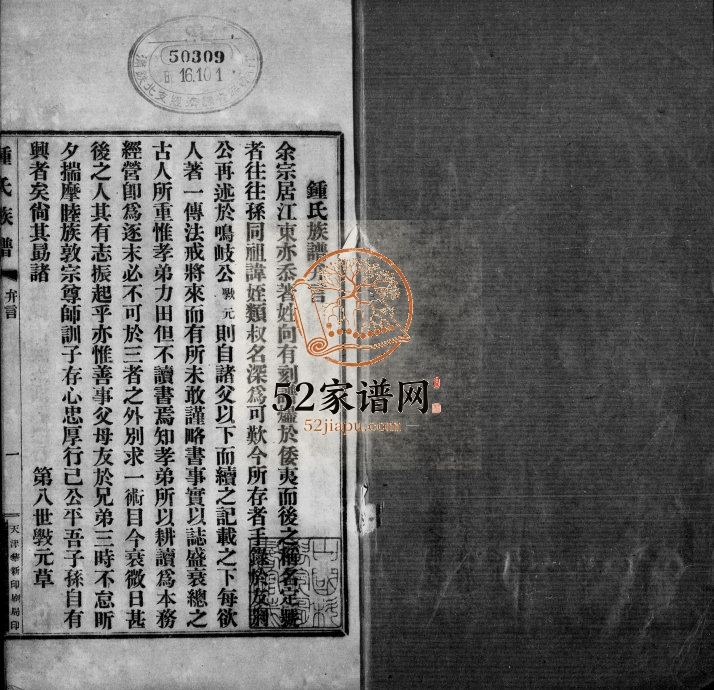 50309
16.10.1
鍾氏族譜弁言
余宗居江東亦忝著姓向有刻 燼於倭夷而後之稱名定號
者往往孫同祖諱姪類叔名深為可歎今所存者手錄於友蔣
公再述於鳴岐公 斅元 則自諸父以下而續之記載之下每欲
人著一傳法戒將來而有所未敢謹略書事實以誌盛衰總之
古人所重惟孝弟力田但不讀書焉知孝弟所以耕讀為本務
經營卽為逐末必不可於三者之外別求一術目今衰微日甚
後之人其有志振起乎亦惟善事父母友於兄弟三時不怠昕
夕揣摩睦族敦宗尊師訓子存心忠厚行己公平吾子孫自有
興者矣尙其勗諸
第八世斅元草
鍾氏族譜
弁言
一
天津華新印刷局印
52家谱网
52jiapu.com